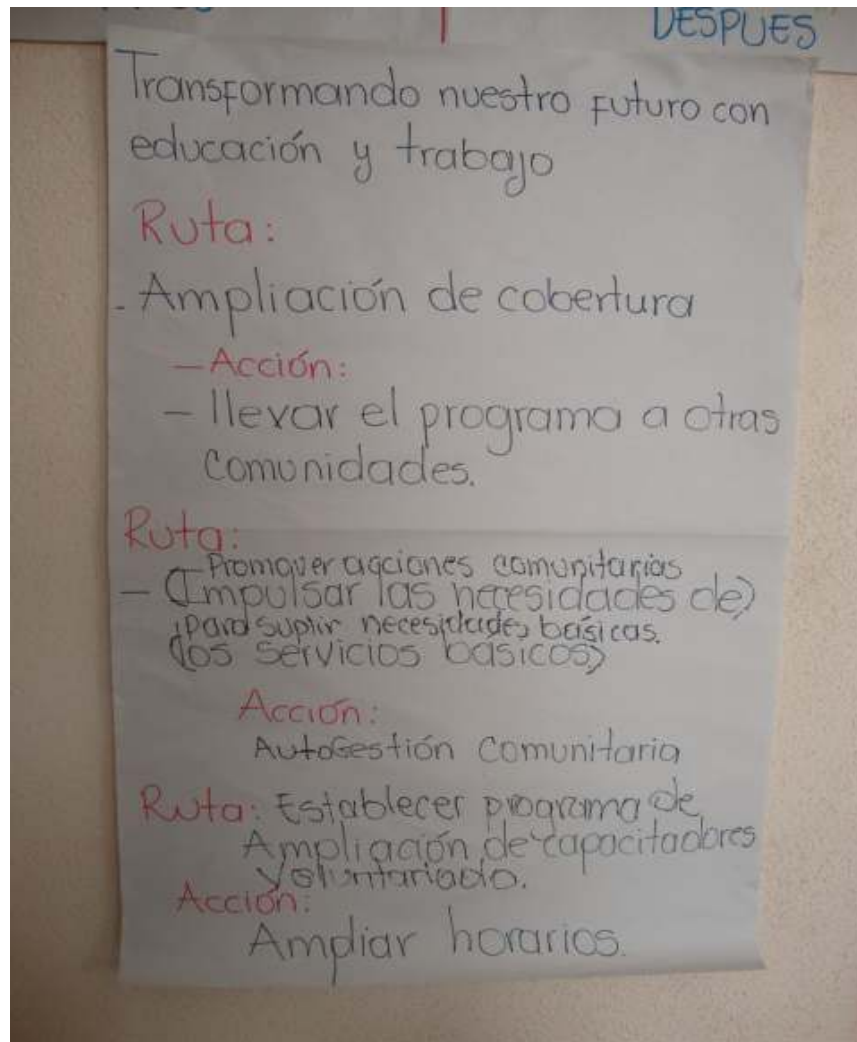 DESPUES
Transformando nuestro futuro con
educación y trabajo
Ruta:
- Ampliación de cobertura
- Acción:
- llevar el programa a otras
comunidades.
Ruta:
Promover acciones comunitarias
- (Impulsar las necesidades de)
para suplir necesidades básicas.
(los servicios básicos)
Acción:
AutoGestión Comunitaria
Ruta: Establecer programa de
Ampliación de capacitadores
Voluntariado.
Acción:
Ampliar horarios.